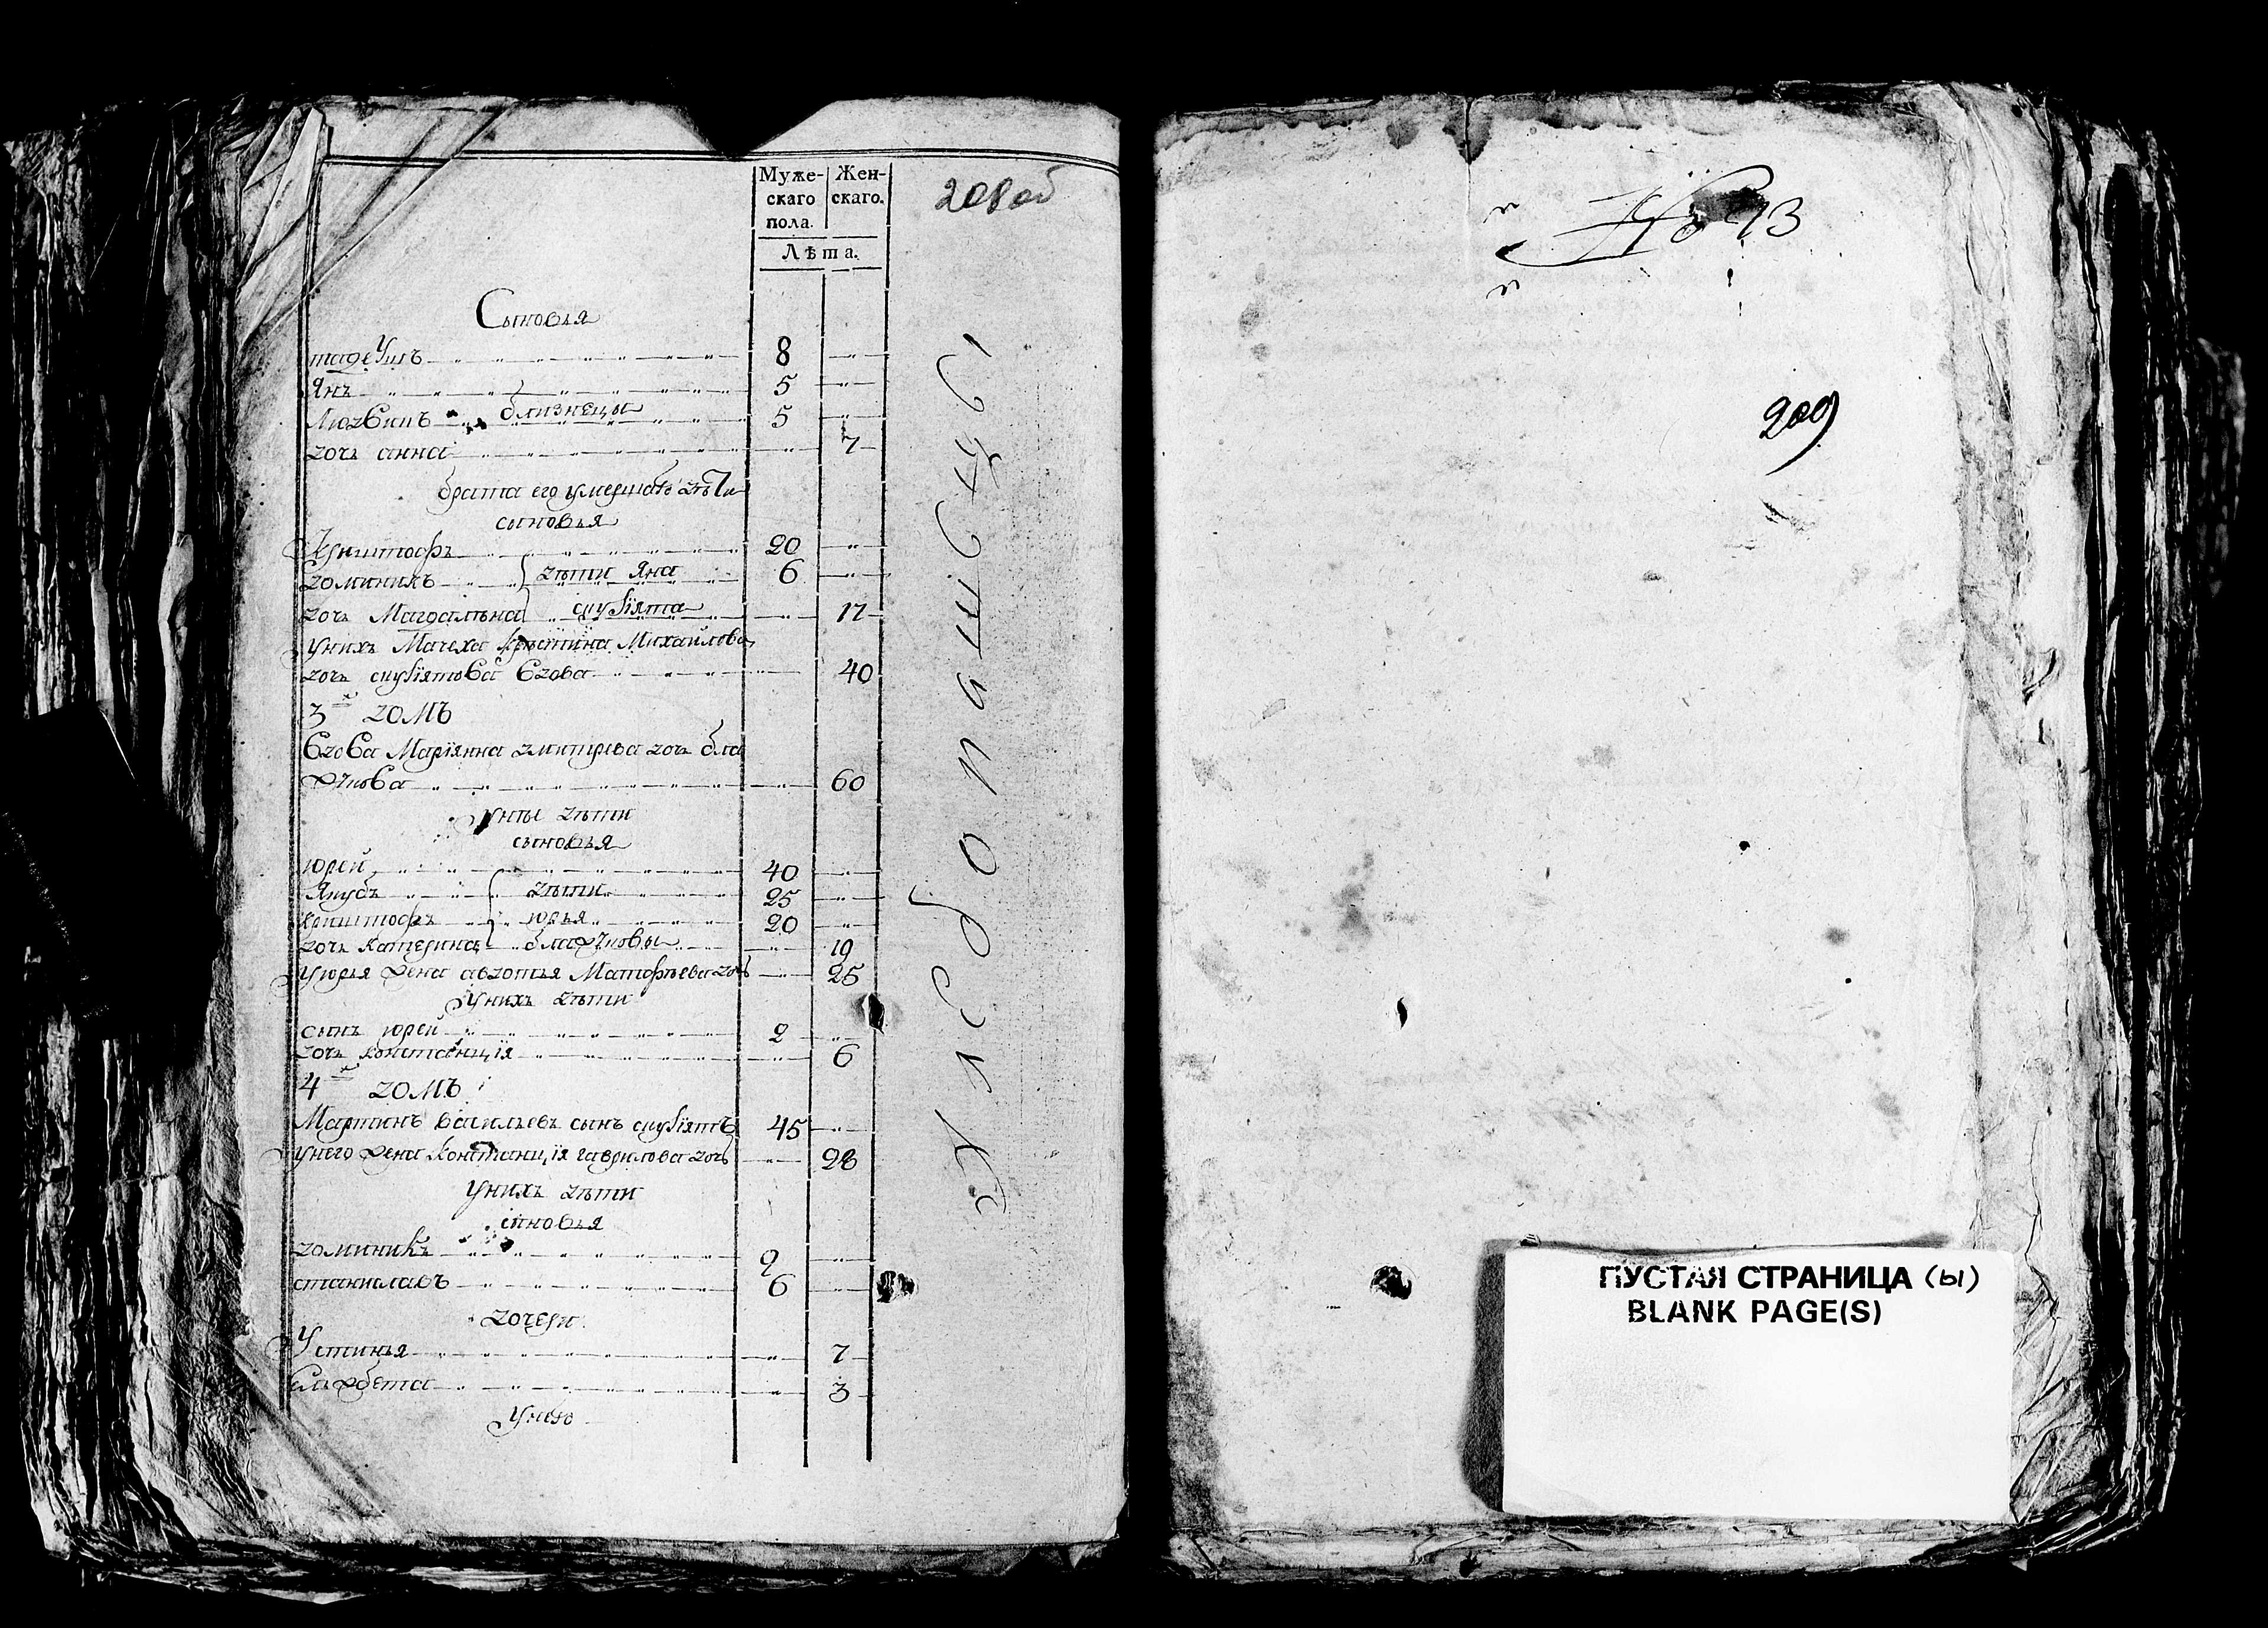 Муже-
скаго
пола.
Жен-
скаго.
Лѣта.
208 об
Сыновья
тадеушъ 8
Янъ 5
Людвикъ близнецы 5
дочь анна 7
брата его умершаго дѣти
сыновья
Криштофъ 20
доминикъ дѣти Яна 6
дочь Магдалѣна 17
унихъ Мачеха Крыстина Михайлова
дочь вдова 40
3й домъ
Вдова Марїянна дмитрева дочь
60
унѣе дѣти
сыновья
юрей 40
Якубъ дѣти 25
криштофъ юрья 20
дочь катерина 19
Уюрья жена авдотья Матфѣева дочь 25
Унихъ дѣти
сынъ юрей 2
дочь констанцїя 6
4й домъ
Мартинъ васильевъ сынъ 45
унего жена Констанцїя гаврилова дочь 28
Унихъ дѣти
сыновья
доминикъ 9
станиславъ 6
дочери
Устинья 7
ельжбета 3
Унего
№ 13
209
ПУСТАЯ СТРАНИЦА (Ы)
BLANK PAGE(S)